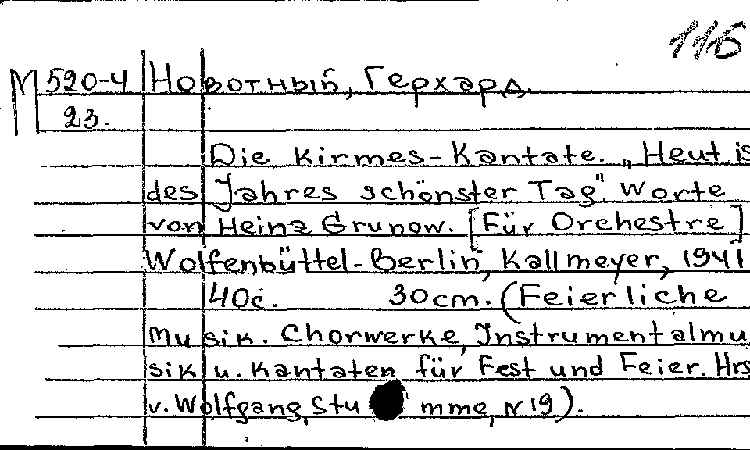 116
М 520-4 Новотный, Герхард.
23.
Die Kirmes-Kantate. „Heut is
des Jahres schönster Tag". Worte
von Heinz Grunow. [Für Orchestre]
Wolfenbüttel-Berlin, Kallmeyer, 1941
40c. 30cm. (Feierliche
Musik. Chorwerke, Instrumentalmu
sik u. Kantaten für Fest und Feier. Hrs
v. Wolfgang Stumme, N 19).